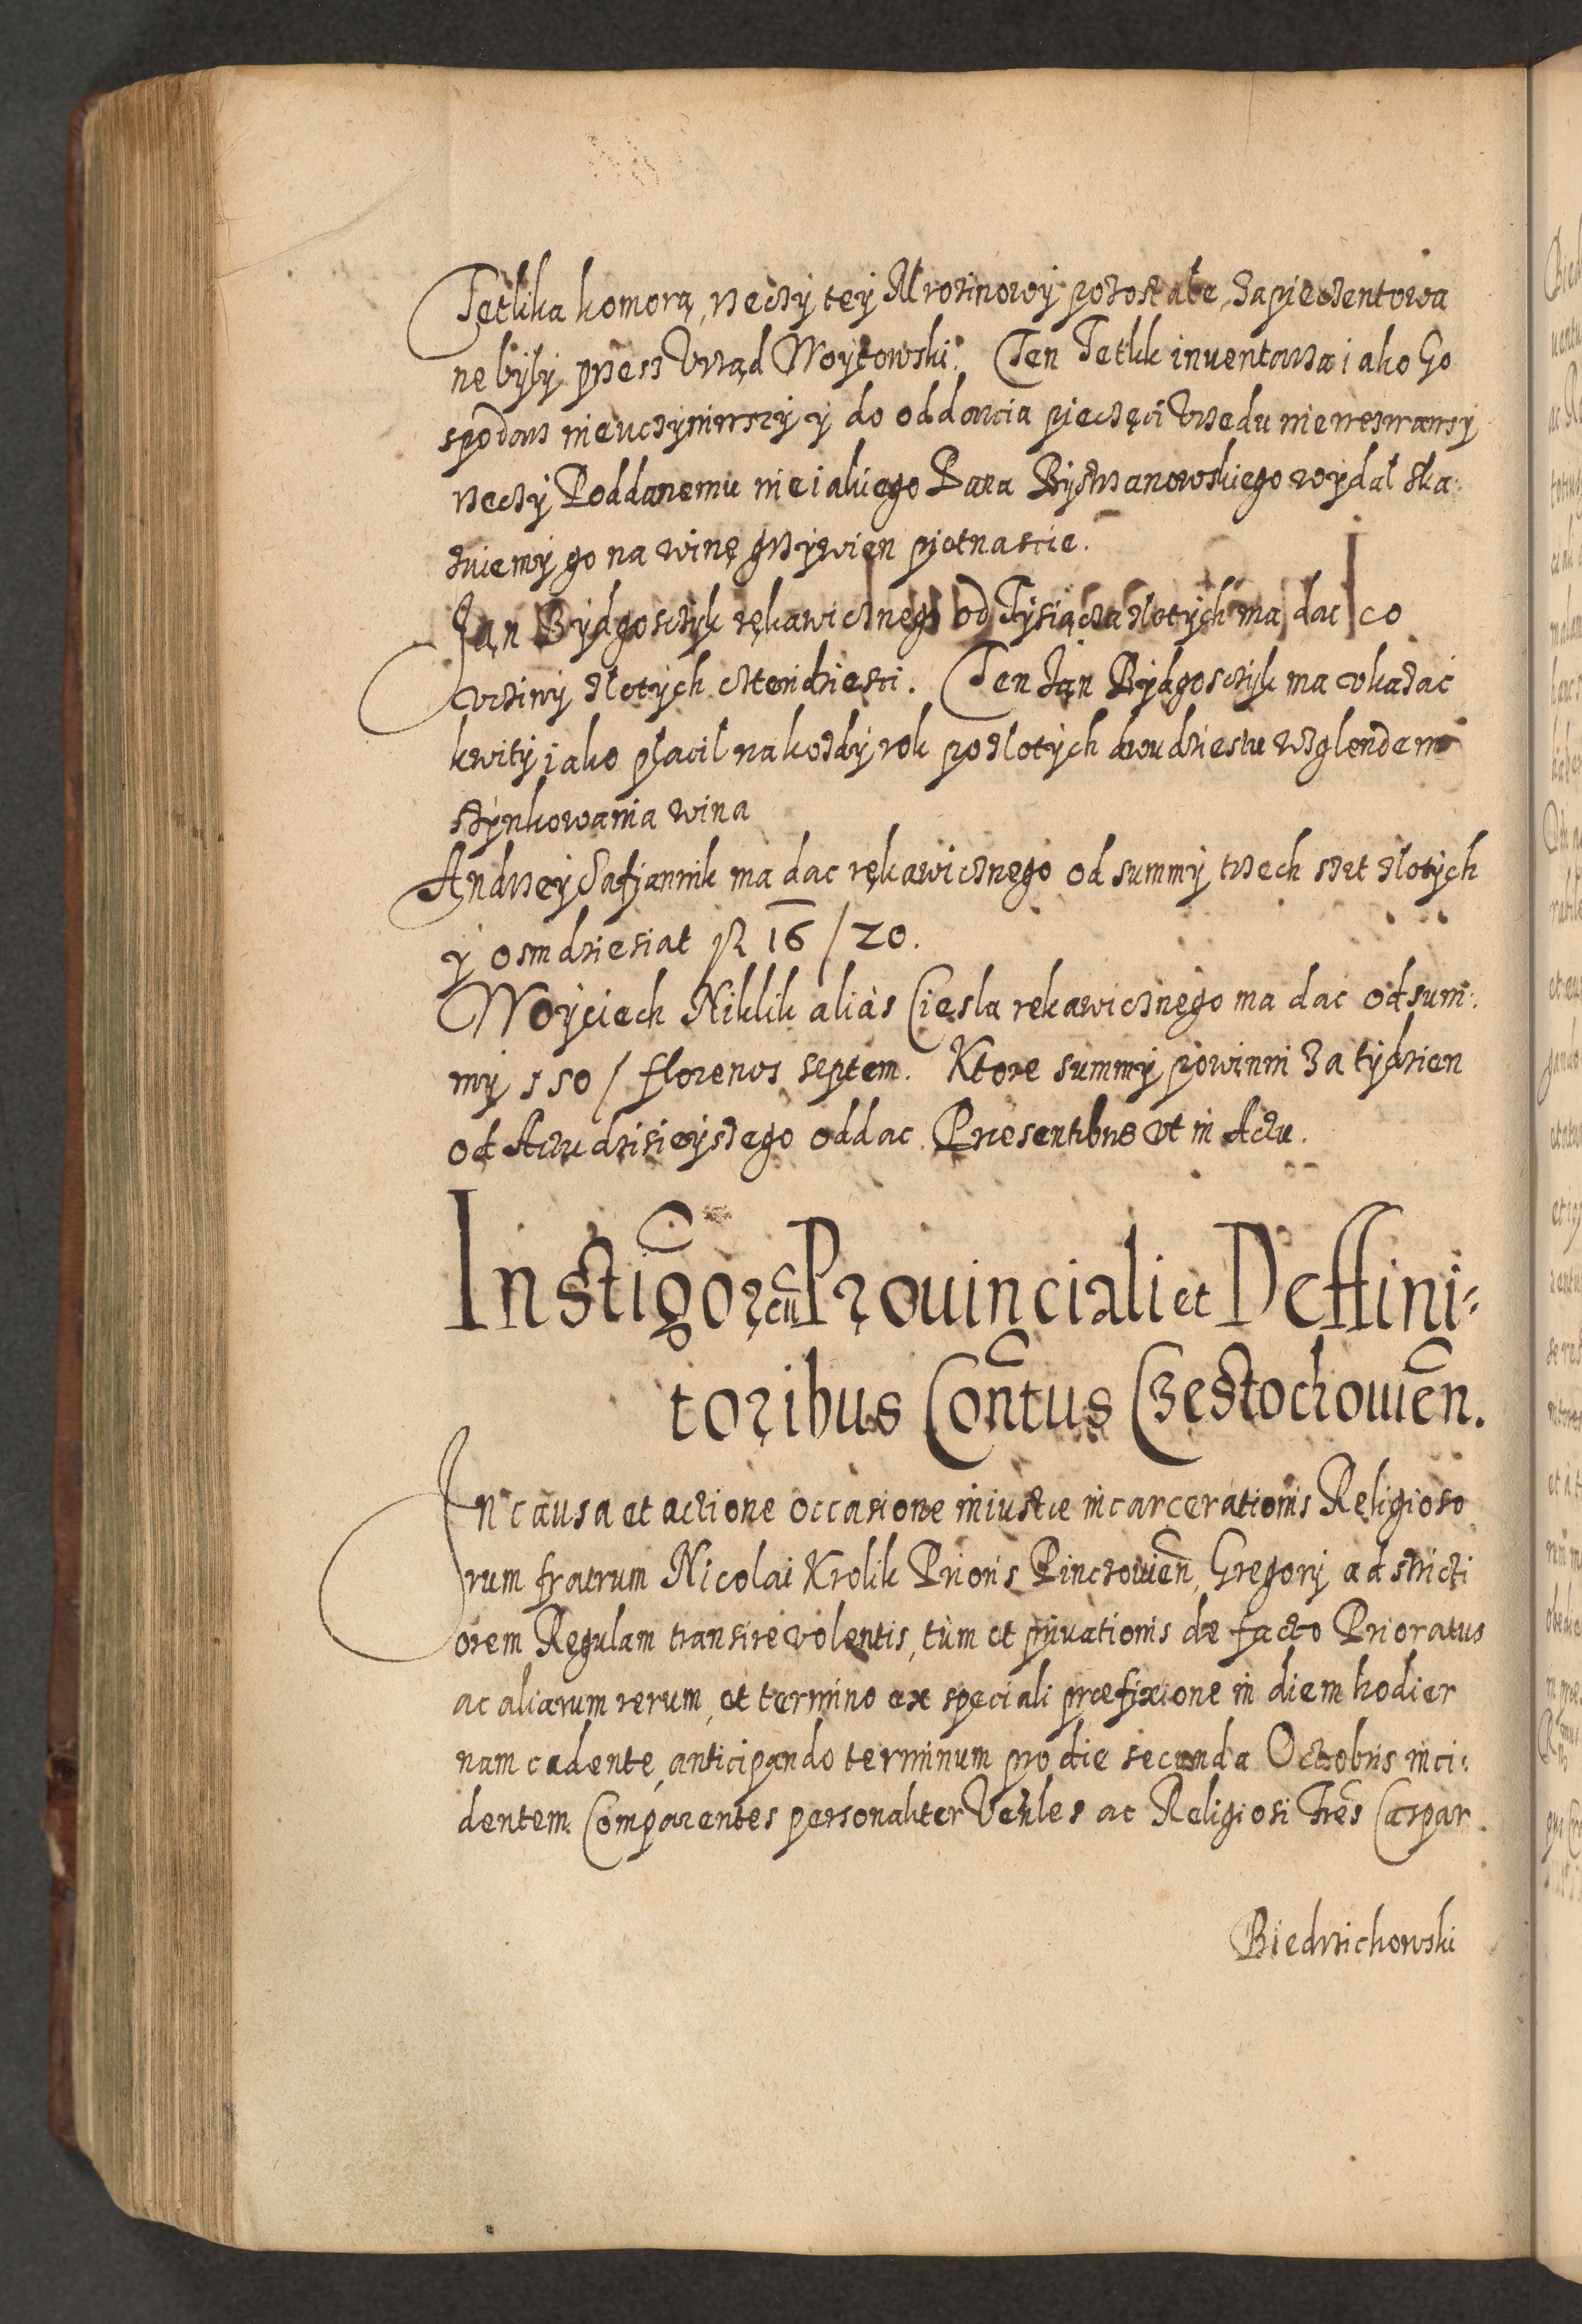 Tetlika komorą, rzeczy tey Mrozinowy pozostałe, zapieczentowa
ne były przesz Vrząd Woytowski. Ten Tetlik inuentarza iako Go
spodarz nieuczyniwszy y do oddarcia pieczęci Vrzedu niewezwawszy
rzeczy Poddanemu nieiakiego Pana Bystrzanowskiego wydal ska:
zuiemy go na winę grzywien pietnascie.
Jan Bydgosczyk rękawicznego od Tysiącza zlotych ma dac co
vczini zlotych czterdziesci. Ten Jan Bydgosczyk ma vkazać
kwity iako płacil na kożdy rok po zlotych dwudziestu wzglendem
szynkowania wina
Andrzey Safjannik ma dac rękawicznego od summy trzech szet zlotych
y osmdziesiat fl 16 / 20.
Woyciech Niklik alias Ciesla rekawicznego ma dac od sum:
my 550 / florenos septem. Ktore summy powinni za tydzien
od Actu dzisieyszego oddac. Presentibus vt in Actu.
Instigor cũ Prouinciali et Deffini:
toribus Contus Czestochouien.
In causa et actione occasione iniustæ incarcerationis Religioso
rum fratrum Nicolai Krolik Prioris Pinczouien, Gregorij ad stricti
orem Regulam transire volentis, tùm et priuationis de facto Prioratus
ac aliarum rerum, et termino ex speciali præfixione in diem hodier
nam cadente, anticipando terminum pro die secunda Octobris inci:
dentem. Comparentes personaliter Venles ac Religiosi Fres Caspar
Biedrzichowski